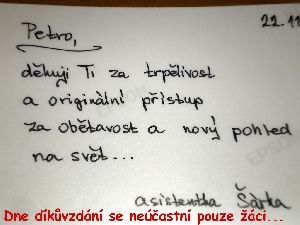 22.11
Petro,
děkuji Ti za trpělivost
a originální přístup
za obětavost a nový pohled
na svět...
asistentka Šárka
Dne díkůvzdání se neúčastní pouze žáci...